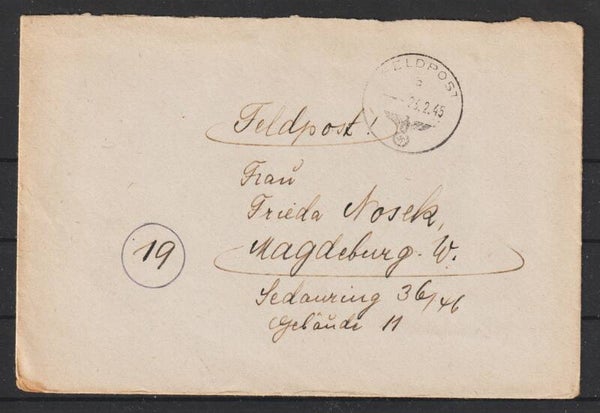 FELDPOST
a
23.2.45
Feldpost!
Frau
Frieda Nosek,
Magdeburg-W.
19
Sedanring 36/46
Gebäude 11